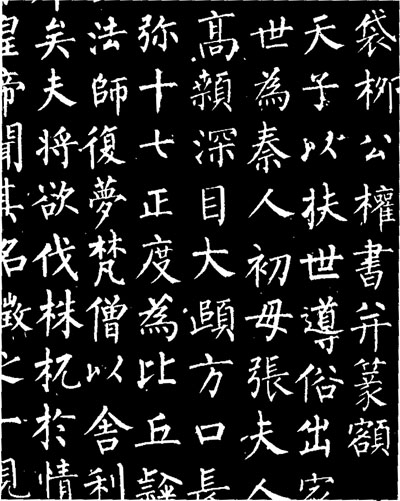 袋柳公權書并篆額
天子以扶世導俗出家
世為秦人初母張夫人
高顙深目大頤方口長
弥十七正度為比丘隸
法師復夢梵僧以舍利
矣夫將欲伐株杌於情
皇帝聞其名徵之一見